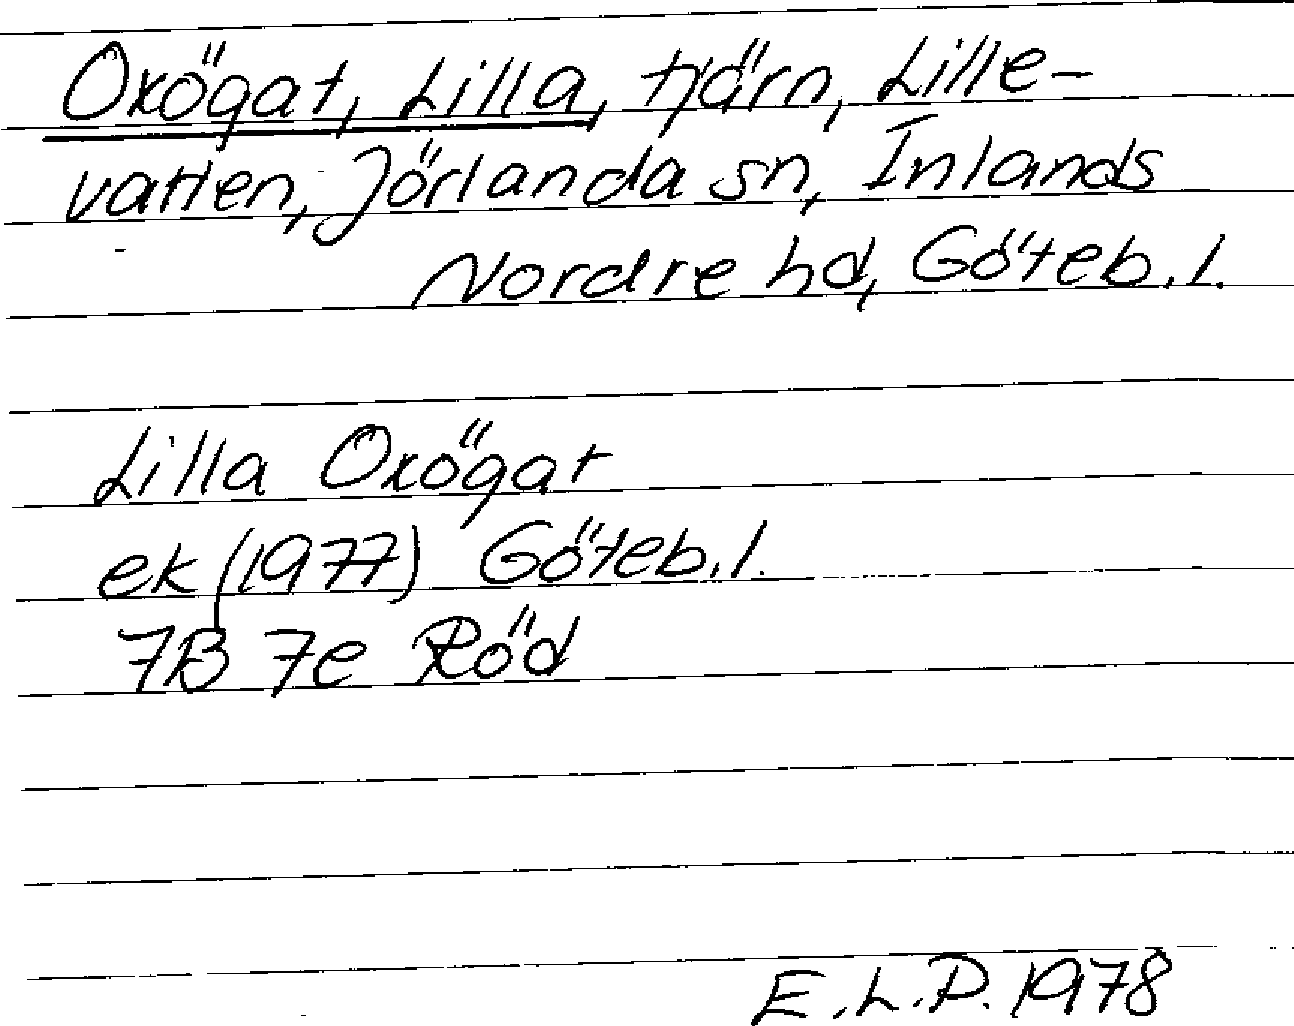 Oxögat, Lilla, tjärn, Lille-
vatten, Jörlanda sn, Inlands
Nordre hd, Göteb. l.
Lilla Oxögat
ek (1977) Göteb. l.
7B 7e Röd
E.L.P. 1978